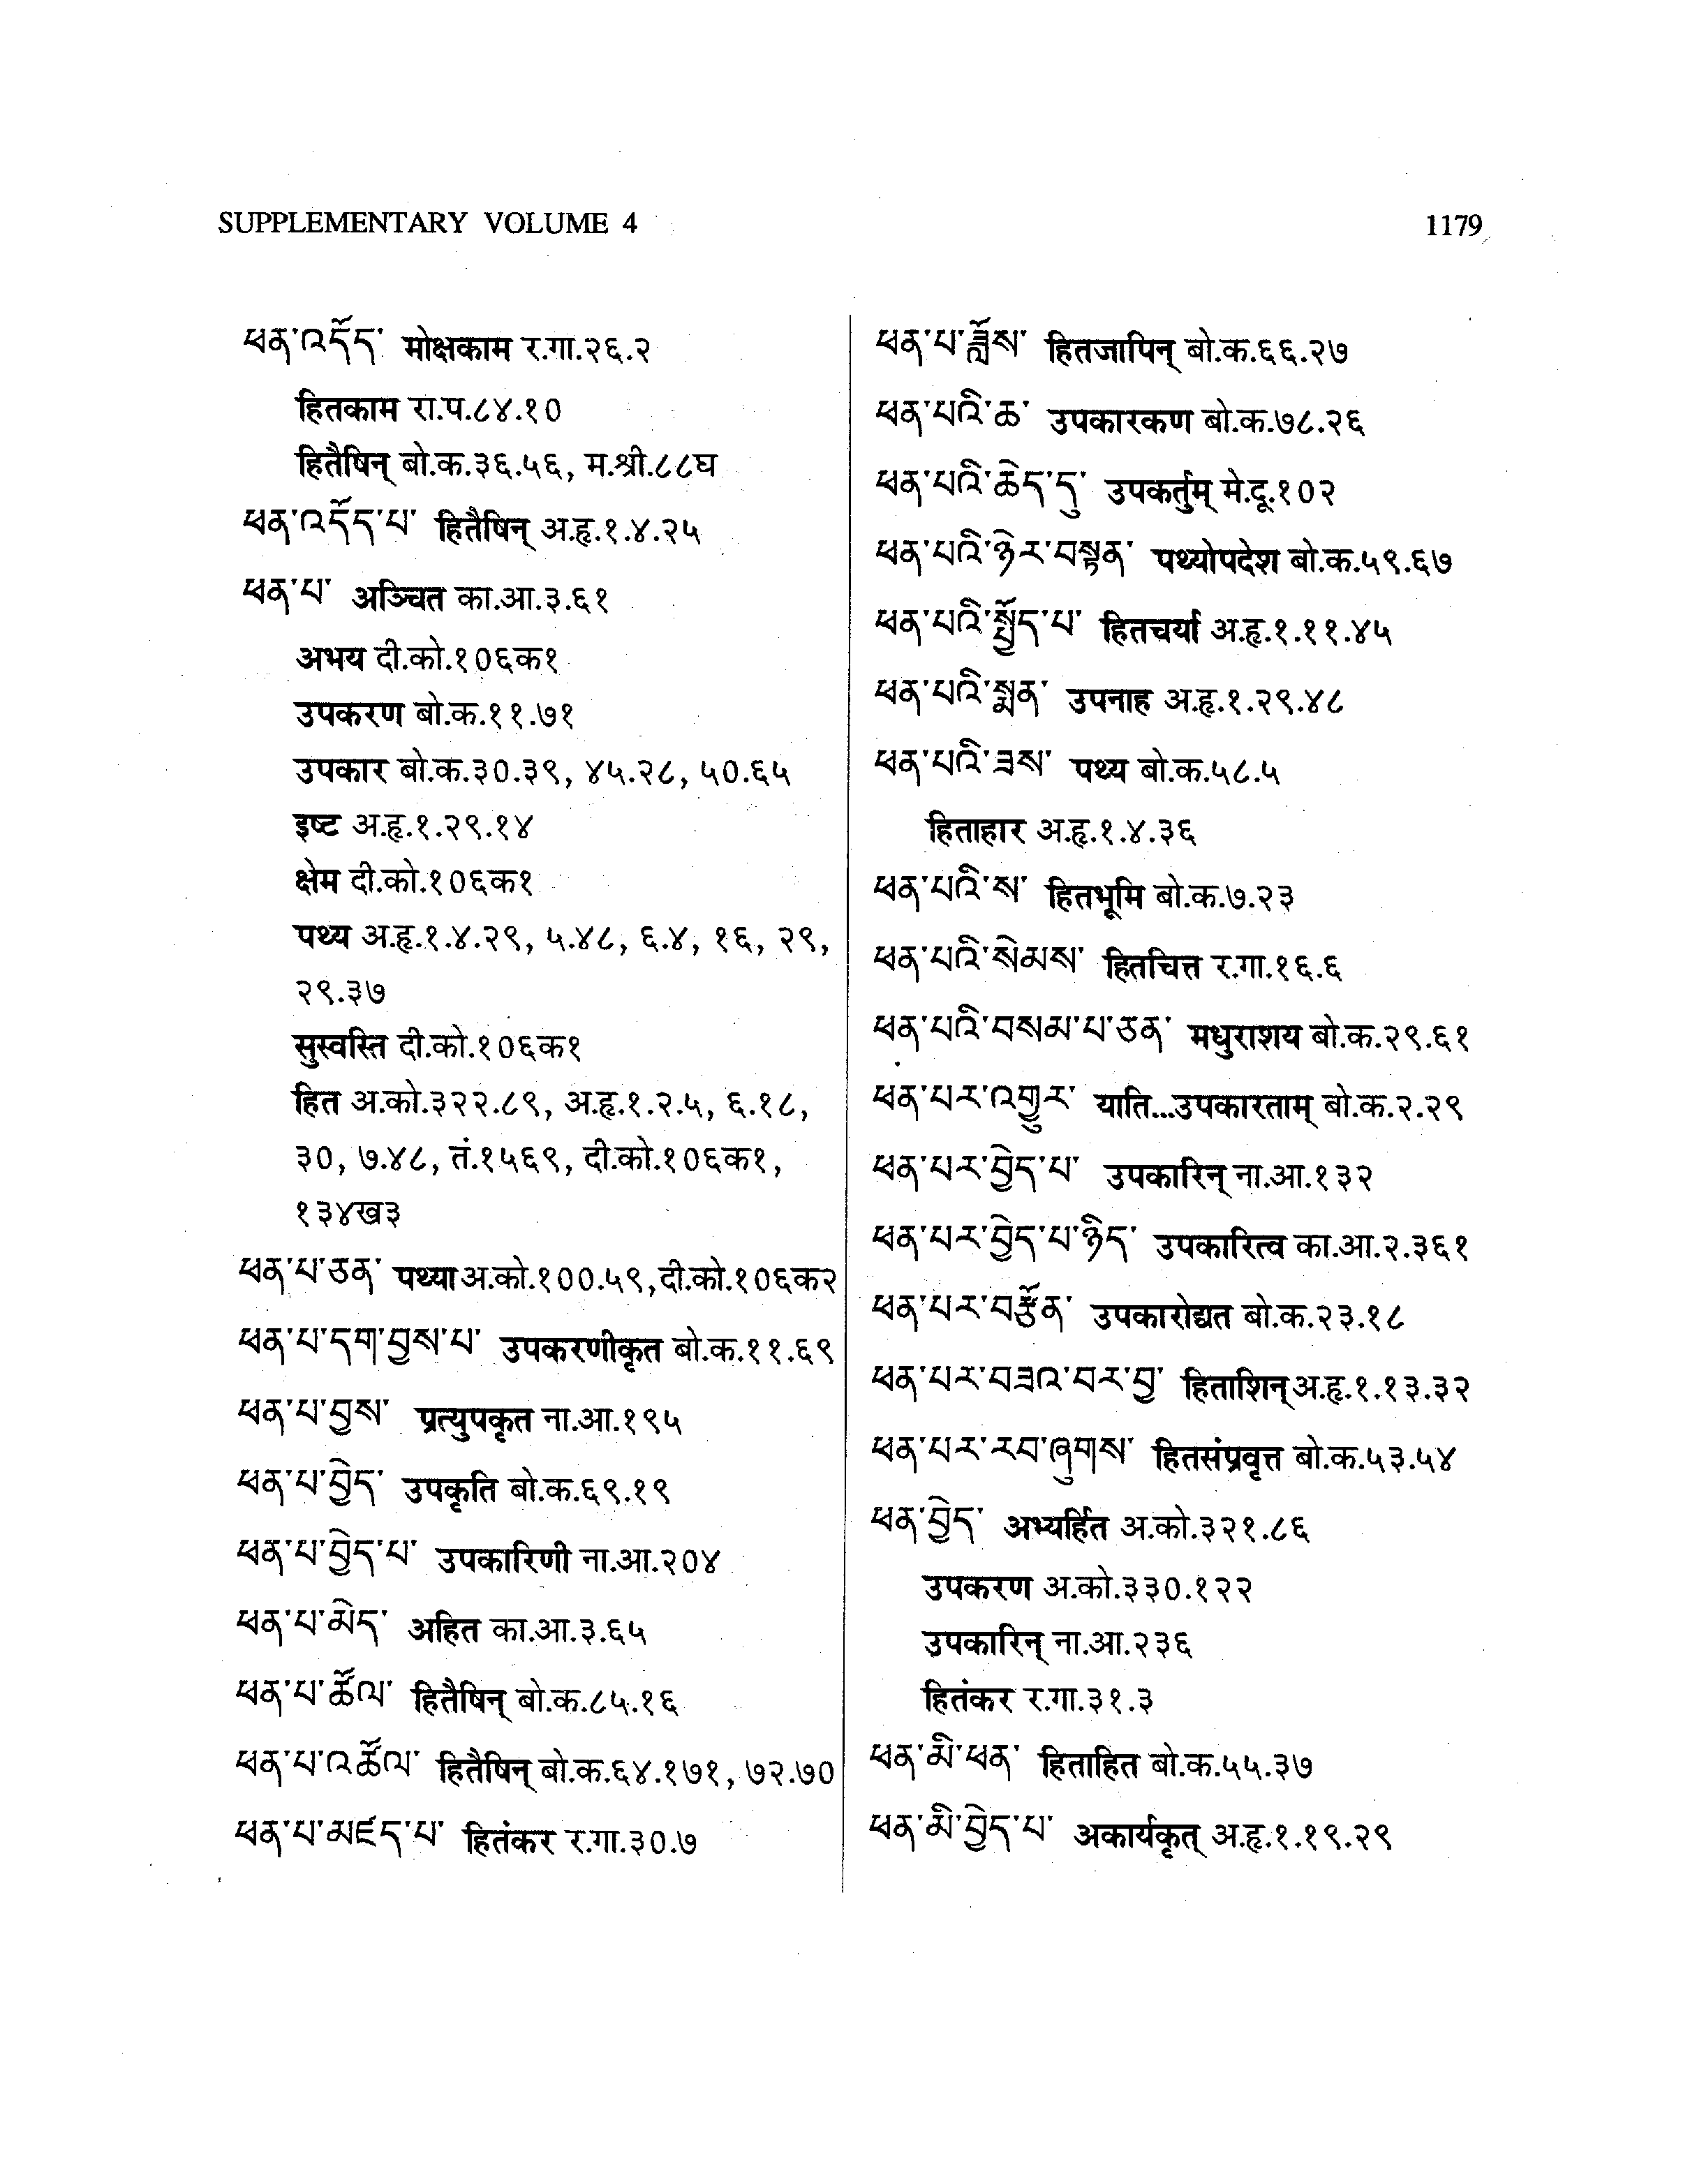 SUPPLEMENTARY VOLUME 4 1179
ཕན་འདོད་ मोक्षकाम र.गा.२६.२
हितकाम रा.प.८४.१०
हितैषिन् बो.क.३६.५६, म.श्री.८८घ
ཕན་འདོད་པ་ हितैषिन् अ.हृ.१.४.२५
ཕན་པ་ अञ्चित का.आ.३.६१
अभय दी.को.१०६क१
उपकरण बो.क.११.७१
उपकार बो.क.३०.३९, ४५.२८, ५०.६५
इष्ट अ.हृ.१.२९.१४
क्षेम दी.को.१०६क१
पथ्य अ.हृ.१.४.२९, ५.४८, ६.४, १६, २९,
२९.३७
सुस्वस्ति दी.को.१०६क१
हित अ.को.३२२.८९, अ.हृ.१.२.५, ६.१८,
३०, ७.४८, तं.१५६९, दी.को.१०६क१,
१३४ख३
ཕན་པ་ཅན་ पथ्या अ.को.१००.५९, दी.को.१०६क२
ཕན་པ་དག་བྱས་པ་ उपकरणीकृत बो.क.११.६९
ཕན་པ་བྱས་ प्रत्युपकृत ना.आ.१९५
ཕན་པ་བྱེད་ उपकृति बो.क.६९.१९
ཕན་པ་བྱེད་པ་ उपकारिणी ना.आ.२०४
ཕན་པ་མེད་ अहित का.आ.३.६५
ཕན་པ་ཚོལ་ हितैषिन् बो.क.८५.१६
ཕན་པ་འཚོལ་ हितैषिन् बो.क.६४.१७१, ७२.७०
ཕན་པ་མཛད་པ་ हितंकर र.गा.३०.७
ཕན་པ་ཟློས་ हितजापिन् बो.क.६६.२७
ཕན་པའི་ཆ་ उपकारकण बो.क.७८.२६
ཕན་པའི་ཆེད་དུ་ उपकर्तुम् मे.दू.१०२
ཕན་པའི་ཉེར་བསྟན་ पथ्योपदेश बो.क.५९.६७
ཕན་པའི་སྤྱོད་པ་ हितचर्या अ.हृ.१.११.४५
ཕན་པའི་སྨན་ उपनाह अ.हृ.१.२९.४८
ཕན་པའི་ཟས་ पथ्य बो.क.५८.५
हिताहार अ.हृ.१.४.३६
ཕན་པའི་ས་ हितभूमि बो.क.७.२३
ཕན་པའི་སེམས་ हितचित्त र.गा.१६.६
ཕན་པའི་བསམ་པ་ཅན་ मधुराशय बो.क.२९.६१
ཕན་པར་འགྱུར་ याति...उपकारताम् बो.क.२.२९
ཕན་པར་བྱེད་པ་ उपकारिन् ना.आ.१३२
ཕན་པར་བྱེད་པ་ཉིད་ उपकारित्व का.आ.२.३६१
ཕན་པར་བརྩོན་ उपकारोद्यत बो.क.२३.१८
ཕན་པར་བཟའ་བར་བྱ་ हिताशिन् अ.हृ.१.१३.३२
ཕན་པར་རབ་ཞུགས་ हितसंप्रवृत्त बो.क.५३.५४
ཕན་བྱེད་ अभ्यर्हित अ.को.३२१.८६
उपकरण अ.को.३३०.१२२
उपकारिन् ना.आ.२३६
हितंकर र.गा.३१.३
ཕན་མི་ཕན་ हिताहित बो.क.५५.३७
ཕན་མི་བྱེད་པ་ अकार्यकृत् अ.हृ.१.१९.२९